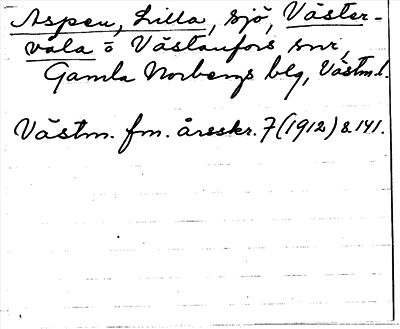 Aspen, Lilla, sjö, Väster-
vala o Västanfors snr,
Gamla Norbergs blg, Västm.l.
Västm. fm. årsskr. 7 (1912) s. 141.